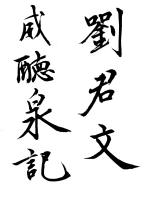 劉君文
咸聽泉記